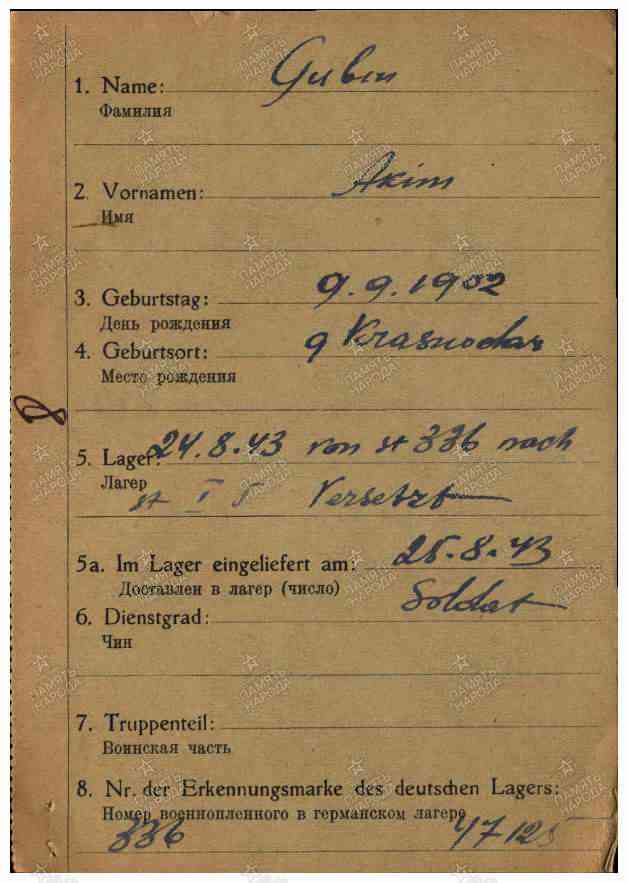 1. Name: Gubin
Фамилия
2. Vornamen: Akim
Имя
3. Geburtstag: 9.9.1902
День рождения
4. Geburtsort: g Krasnodar
Место рождения
8
5. Lager: 24.8.43 von st 336 nach
Лагер st I Versetzt
5a. Im Lager eingeliefert am: 25.8.43
Доставлен в лагер (число)
6. Dienstgrad: Soldat
Чин
7. Truppenteil:
Воинская часть
8. Nr. der Erkennungsmarke des deutschen Lagers:
Номер военнопленного в германском лагере
336 47125
ПАМЯТЬ НАРОДА